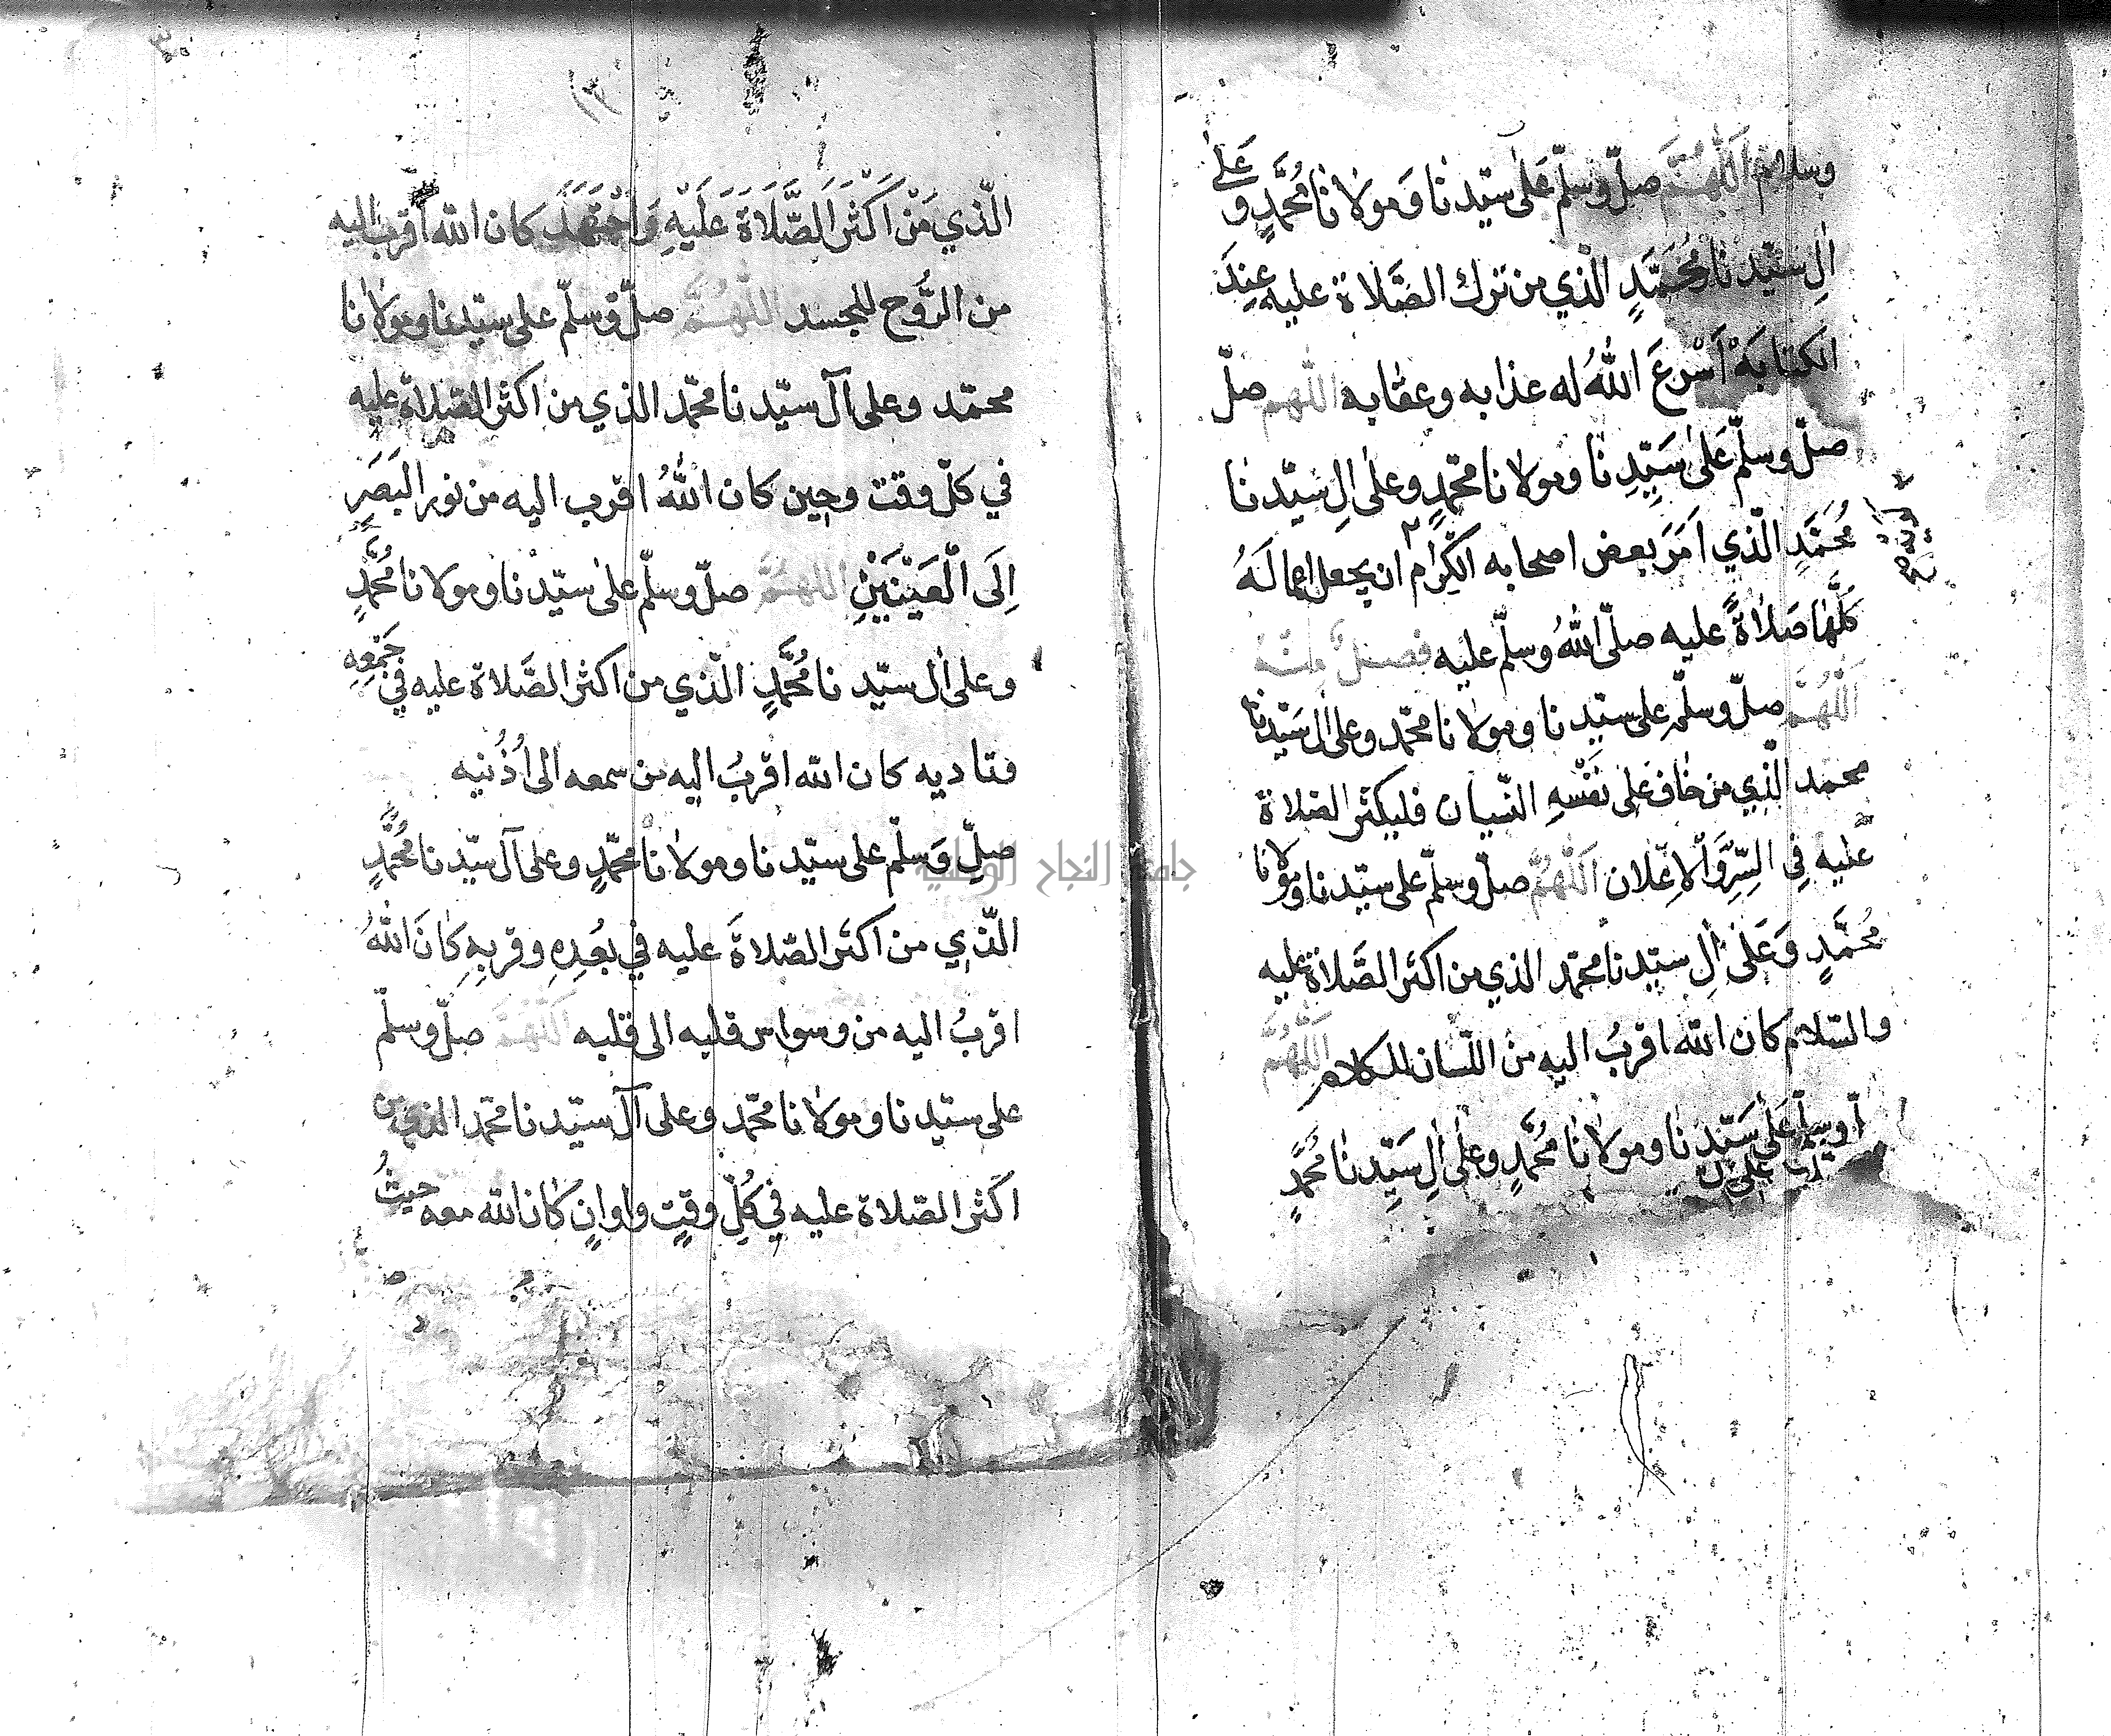 وسلام اَللّٰهُمَّ صلّ وسلّم عَلٰى سيّدنا وَمولانا مُحَمَّدٍ وعَلٰى
اٰلِ سيّدنا مُحَمَّدٍ الّذي من ترك الصَّلاة عليه عِندَ
الكتابَة اَسْرعَ اللّٰهُ له عذابه وعقابه اللّهم صلّ
صلّ وسلّم عَلٰى سَيِّدِنَا ومولانا محمّدٍ وعلى الِ سيّدنا
مُحَمَّدٍ الّذي اَمَرَ بعض اصحابه الكرام ان يجعل اعمالَهُ
كلَّهَا صَلاةً عليه صلّى اللّٰهُ وسلّم عليه فصل منه
اَللّٰهُمَّ صلّ وسلّم على سيّدنا ومولانا محمّد وعلى اٰل سَيّدنا
محمد الّذي من خاف على نَفْسِهِ النّسيان فليكثر الصّلاة
عليه فِي السِّرِّ وَالاِعْلان اَللّٰهُمَّ صلّ وسلّم على سيّدنا ومولانا
مُحَمَّدٍ وَعَلٰى اٰلِ سيّدنا محمّد الذي من اكثَر الصَّلاة عليه
والسّلام كان الله اقربُ اليه من اللّسان للكلام اللّهُمَّ
وسلّم عَلٰى سَيّدنا ومولانا مُحَمَّدٍ وعَلٰى اٰلِ سَيِّدنا مُحَمَّدٍ
الّذي مَنْ اَكْثَرَ الصَّلَاةَ عَلَيْهِ وَاجْتَهَدَ كان الله اَقربَ اليه
من الرُّوح للجسد اللّٰهُمَّ صلّ وسلّم على سيّدنا ومولانا
محمّد وعلى آل سيّدنا محمّد الذي من اكثر الصّلاة عليه
في كلّ وقت وحِين كان اللّٰهُ اقرب اليه من نور البَصَرِ
اِلَى الْعَيْنَيْنِ اللّهُمَّ صلّ وسلّم على سيّدنا ومولانا مُحَمَّدٍ
وعلى اٰل سيّدنا مُحَمَّدٍ الّذي من اكثر الصَّلاة عليه في جَمْعِهِ
كان الله اقربُ اليه من سمعه الى اُذُنيه
صلِّ وَسلّم على سيّدنا ومولانا محمّدٍ وعلى آل سيّدنا مُحَمَّدٍ
الّذي من اكثَر الصّلاةَ عليه في بُعْدِهِ وقربِهِ كانَ اللّٰهُ
اقربُ اليه من وسواس قلبه الى قلبه اَللّٰهُمَّ صلّ وسلّم
على سيّدنا ومولانا محمّد وعلى آل سيّدنا محمّد الذي من
اكثر الصّلاة عليه في كُلّ وقتٍ واوانٍ كان الله معه حيثُ
جامعة النجاح الوطنية